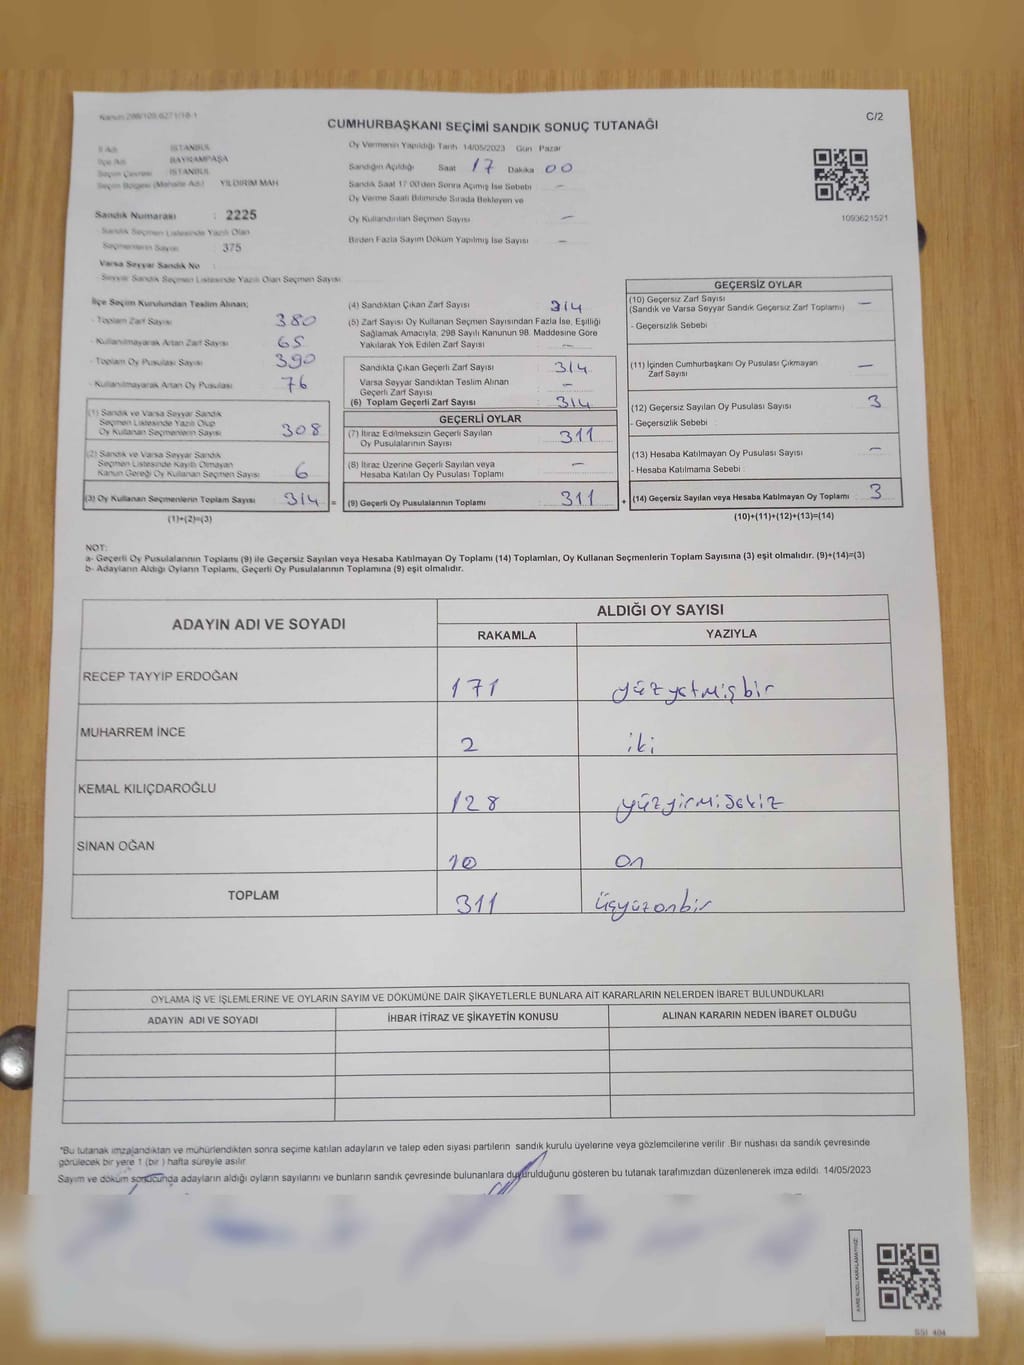 Kanun:298/109,6271/18-1
CUMHURBAŞKANI SEÇİMİ SANDIK SONUÇ TUTANAĞI
C/2
İl Adı : İSTANBUL
İlçe Adı : BAYRAMPAŞA
Seçim Çevresi : İSTANBUL
Seçim Bölgesi (Mahalle Adı) : YILDIRIM MAH
Sandık Numarası : 2225
Sandık Seçmen Listesinde Yazılı Olan
Seçmenlerin Sayısı : 375
Varsa Seyyar Sandık No :
Seyyar Sandık Seçmen Listesinde Yazılı Olan Seçmen Sayısı
Oy Vermenin Yapıldığı Tarih 14/05/2023 Gün Pazar
Sandığın Açıldığı Saat 17 Dakika 00
Sandık Saat 17:00'den Sonra Açımış İse Sebebi –
Oy Verme Saati Bitiminde Sırada Bekleyen ve
Oy Kullandırılan Seçmen Sayısı –
Birden Fazla Sayım Döküm Yapılmış İse Sayısı –
1093621521
İlçe Seçim Kurulundan Teslim Alınan;
- Toplam Zarf Sayısı 380
- Kullanılmayarak Artan Zarf Sayısı 65
- Toplam Oy Pusulası Sayısı 390
- Kullanılmayarak Artan Oy Pusulası 76
(1) Sandık ve Varsa Seyyar Sandık
Seçmen Listesinde Yazılı Olup
Oy Kullanan Seçmenlerin Sayısı 308
(2) Sandık ve Varsa Seyyar Sandık
Seçmen Listesinde Kayıtlı Olmayan
Kanun Gereği Oy Kullanan Seçmen Sayısı 6
(3) Oy Kullanan Seçmenlerin Toplam Sayısı 314 =
(1)+(2)=(3)
(4) Sandıktan Çıkan Zarf Sayısı 314
(5) Zarf Sayısı Oy Kullanan Seçmen Sayısından Fazla İse, Eşitliği
Sağlamak Amacıyla, 298 Sayılı Kanunun 98. Maddesine Göre
Yakılarak Yok Edilen Zarf Sayısı –
Sandıkta Çıkan Geçerli Zarf Sayısı 314
Varsa Seyyar Sandıktan Teslim Alınan
Geçerli Zarf Sayısı : –
(6) Toplam Geçerli Zarf Sayısı : 314
GEÇERLİ OYLAR
(7) İtiraz Edilmeksizin Geçerli Sayılan
Oy Pusulalarının Sayısı : 311
(8) İtiraz Üzerine Geçerli Sayılan veya
Hesaba Katılan Oy Pusulası Toplamı : –
(9) Geçerli Oy Pusulalarının Toplamı : 311 +
GEÇERSİZ OYLAR
(10) Geçersiz Zarf Sayısı –
(Sandık ve Varsa Seyyar Sandık Geçersiz Zarf Toplamı)
- Geçersizlik Sebebi
(11) İçinden Cumhurbaşkanı Oy Pusulası Çıkmayan
Zarf Sayısı –
(12) Geçersiz Sayılan Oy Pusulası Sayısı 3
- Geçersizlik Sebebi :
(13) Hesaba Katılmayan Oy Pusulası Sayısı –
- Hesaba Katılmama Sebebi :
(14) Geçersiz Sayılan veya Hesaba Katılmayan Oy Toplamı : 3
(10)+(11)+(12)+(13)=(14)
NOT:
a- Geçerli Oy Pusulalarının Toplamı (9) ile Geçersiz Sayılan veya Hesaba Katılmayan Oy Toplamı (14) Toplamları, Oy Kullanan Seçmenlerin Toplam Sayısına (3) eşit olmalıdır. (9)+(14)=(3)
b- Adayların Aldığı Oyların Toplamı, Geçerli Oy Pusulalarının Toplamına (9) eşit olmalıdır.
ADAYIN ADI VE SOYADI
ALDIĞI OY SAYISI
RAKAMLA YAZIYLA
RECEP TAYYİP ERDOĞAN 171 yüzyetmişbir
MUHARREM İNCE 2 iki
KEMAL KILIÇDAROĞLU 128 yüzyirmisekiz
SİNAN OĞAN 10 on
TOPLAM 311 üçyüzonbir
OYLAMA İŞ VE İŞLEMLERİNE VE OYLARIN SAYIM VE DÖKÜMÜNE DAİR ŞİKAYETLERLE BUNLARA AİT KARARLARIN NELERDEN İBARET BULUNDUKLARI
ADAYIN ADI VE SOYADI İHBAR İTİRAZ VE ŞİKAYETİN KONUSU ALINAN KARARIN NEDEN İBARET OLDUĞU
*Bu tutanak imzalandıktan ve mühürlendikten sonra seçime katılan adayların ve talep eden siyasi partilerin sandık kurulu üyelerine veya gözlemcilerine verilir .Bir nüshası da sandık çevresinde
görülecek bir yere 1 (bir ) hafta süreyle asılır
Sayım ve döküm sonucunda adayların aldığı oyların sayılarını ve bunların sandık çevresinde bulunanlara duyurulduğunu gösteren bu tutanak tarafımızdan düzenlenerek imza edildi. 14/05/2023
KARE KODU KARALAMAYINIZ!